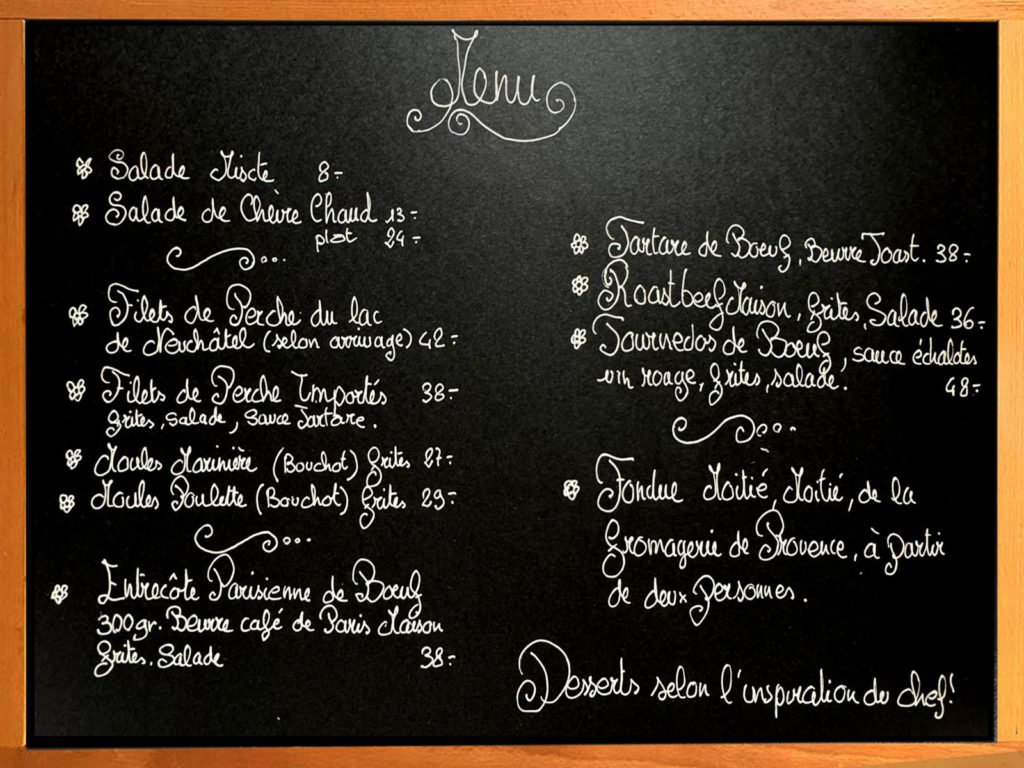 Menu
Salade Mixte 8.-
Salade de Chèvre Chaud 13.-
plat 24.-
Filets de Perche du lac
de Neuchâtel (selon arrivage) 42.-
Filets de Perche Importés 38.-
frites, salade, Sauce Tartare.
Moules Marinière (Bouchot) frites 27.-
Moules Poulette (Bouchot) frites 29.-
Entrecôte Parisienne de Boeuf
300gr. Beurre café de Paris Maison
frites. Salade 38.-
Tartare de Boeuf, Beurre Toast. 38.-
Roastbeef Maison, frites, Salade 36.-
Tournedos de Boeuf, sauce échalotes
vin rouge, frites, salade. 48.-
Fondue Moitié, Moitié, de la
fromagerie de Provence, à partir
de deux personnes.
Desserts selon l'inspiration du chef!